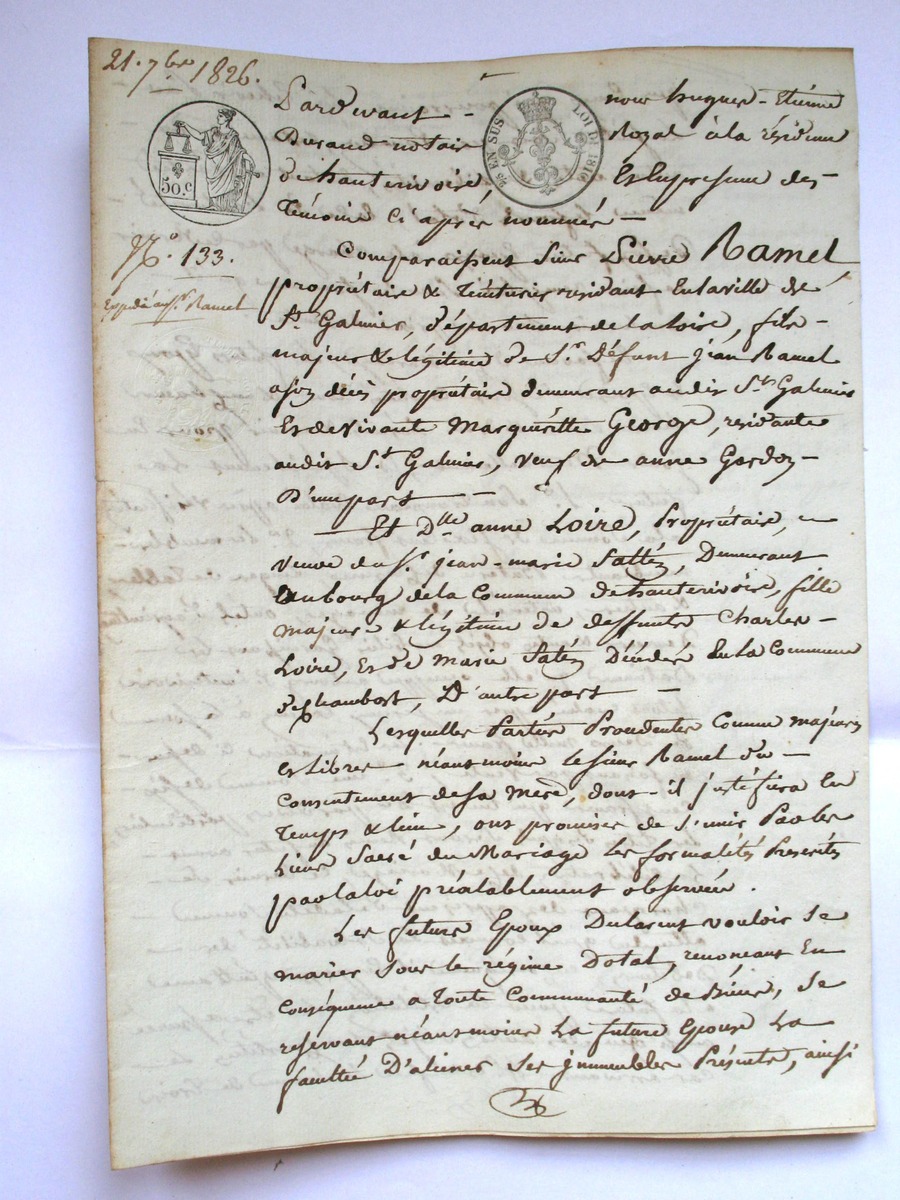 21. 7bre 1826.
Pardevant nous hugues-Etienne
Durand notaire Royal à la résidence
de hauterivoire, Et En presence des
Témoins Ci après nommés
50.c
¼ EN SUS LOI DE 1816
N.o 133.
Expédié au sr. Ramel
Comparaissent Sieur Pierre Ramel
propriétaire & Teinturier residant En la ville de
St. Galmier, département de la Loire, fils
majeur & légitime de Sr. Défunt jean Ramel
a son décès propriétaire demeurant audit St. Galmier
Et de Vivante Marguéritte George, residante
audit St. Galmier, veuf de anne Gordon
D'une part
Et Dlle anne Loire, Propriétaire,
veuve du Sr. jean-marie Mattéz, Demeurant
au bourg de la Commune de hauterivoire, fille
majeure & légitime de deffunts Charles
Loire, Et de Marie Satéz Décédés En la Commune
de Chambost, D'autre part
Lesquelles Parties Procedentes Comme majeures
Et libres néantmoins le sieur Ramel du
Consentement de sa Mere, dont-il justifiera En
Temps & lieu, ont promises de S'unir Par les
Liens Sacré du Mariage les formalités Prescrites
par la loi préalablement observées.
Les future Epoux Declarent vouloir Se
marier Sous le régime Dotal, renoncant En
Conséquence a Toute Communauté de Biens, Se
reservant néantmoins La future Epouse La
faculté D'aliener Ses immeubles Présents, ainsi